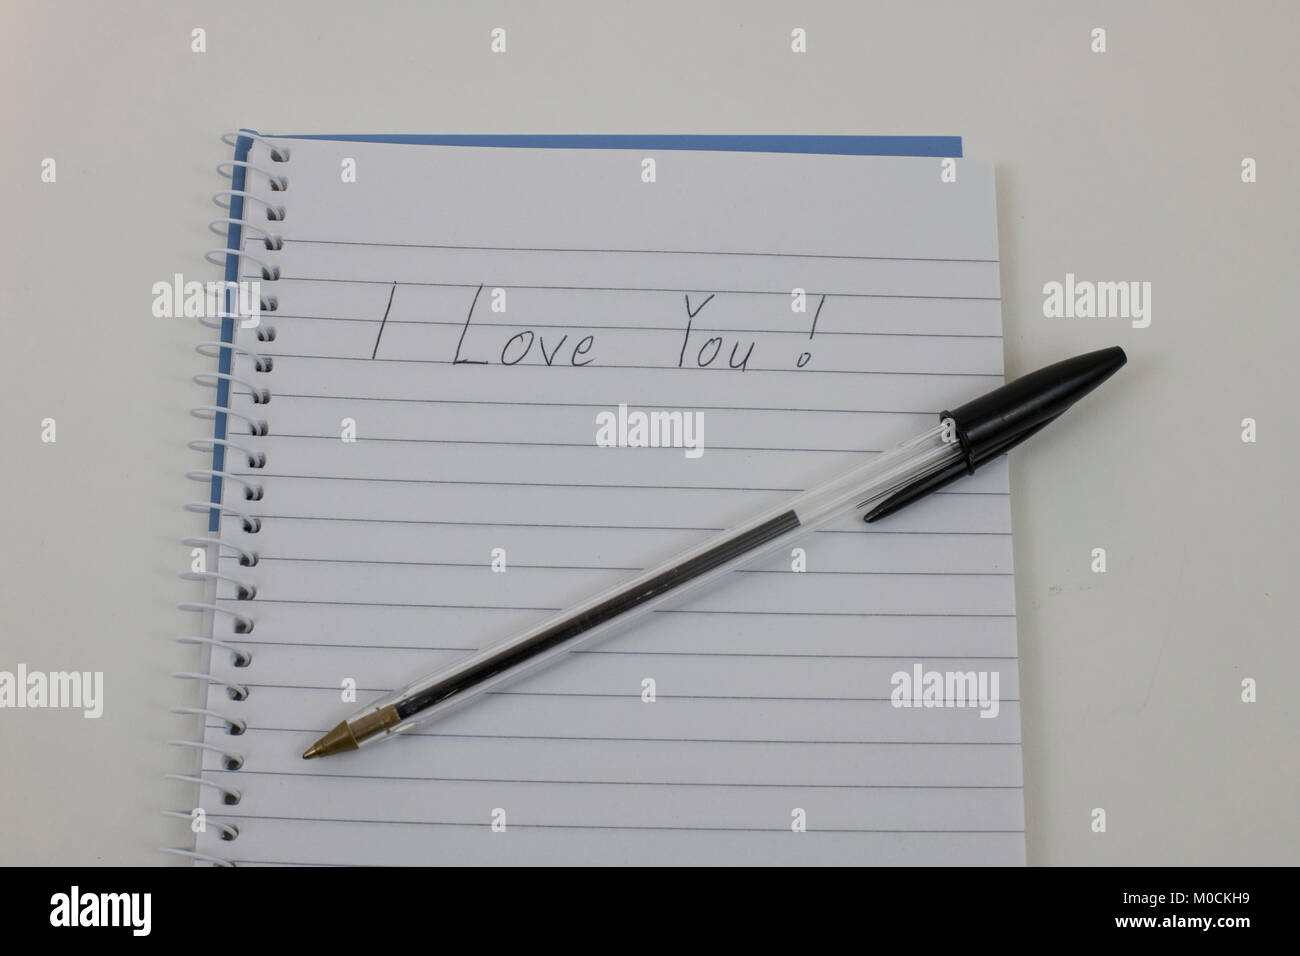 I Love You!
alamy
alamy
alamy
alamy
alamy
alamy
Image ID: M0CKH9
www.alamy.com